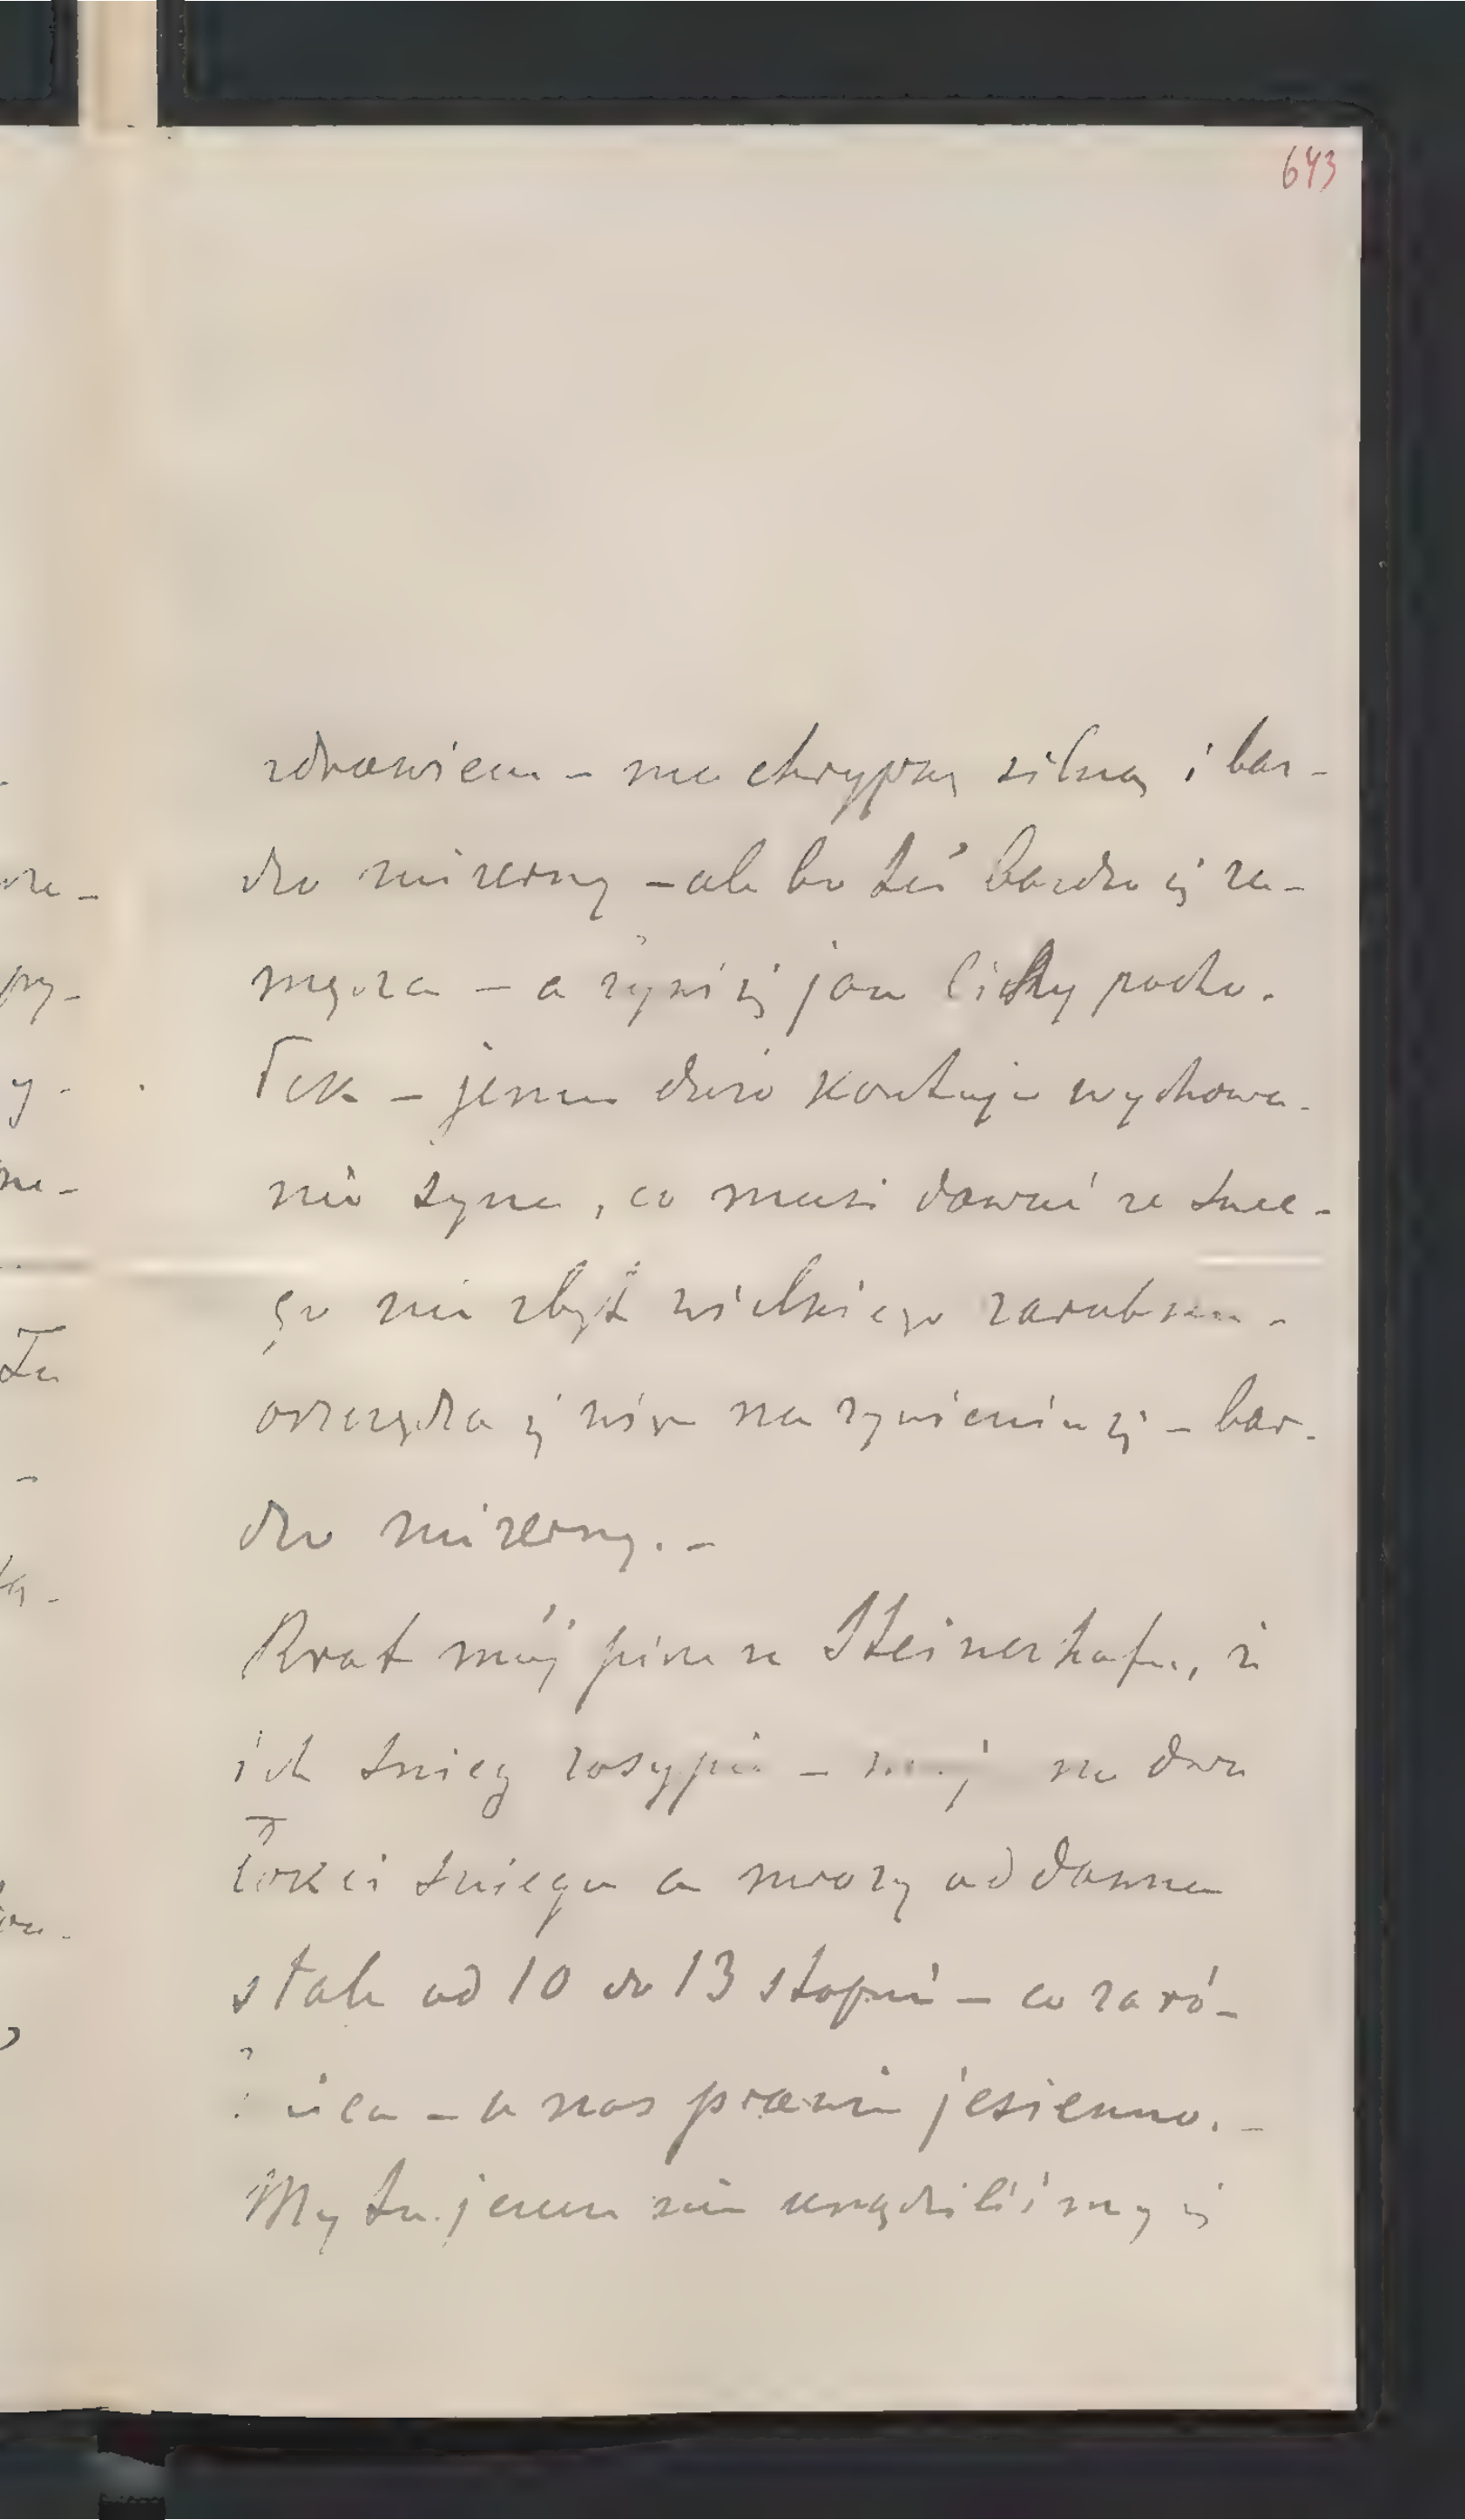 643
zdrowiem – ma chrypkę silną i bar-
dzo mizerny – ale bo też bardzo się za-
męcza – a żywi się jak lichy pacho-
łek – jemu dużo kosztuje wychowa-
nie syna, co musi dawać ze swe-
go nie zbyt wielkiego zarobku –
oszczędza się więc na żywieniu się – bar-
dzo mizerny. –
Brat mój pisze ze Steinerhofu, że
ich śnieg zasypie – na dwa
łokci śniegu a mrozy od dawna
stale od 10 do 13 stopni – co za ró-
żnica – u nas prawie jesienno. –
My tu jeszcze nie urządziliśmy się